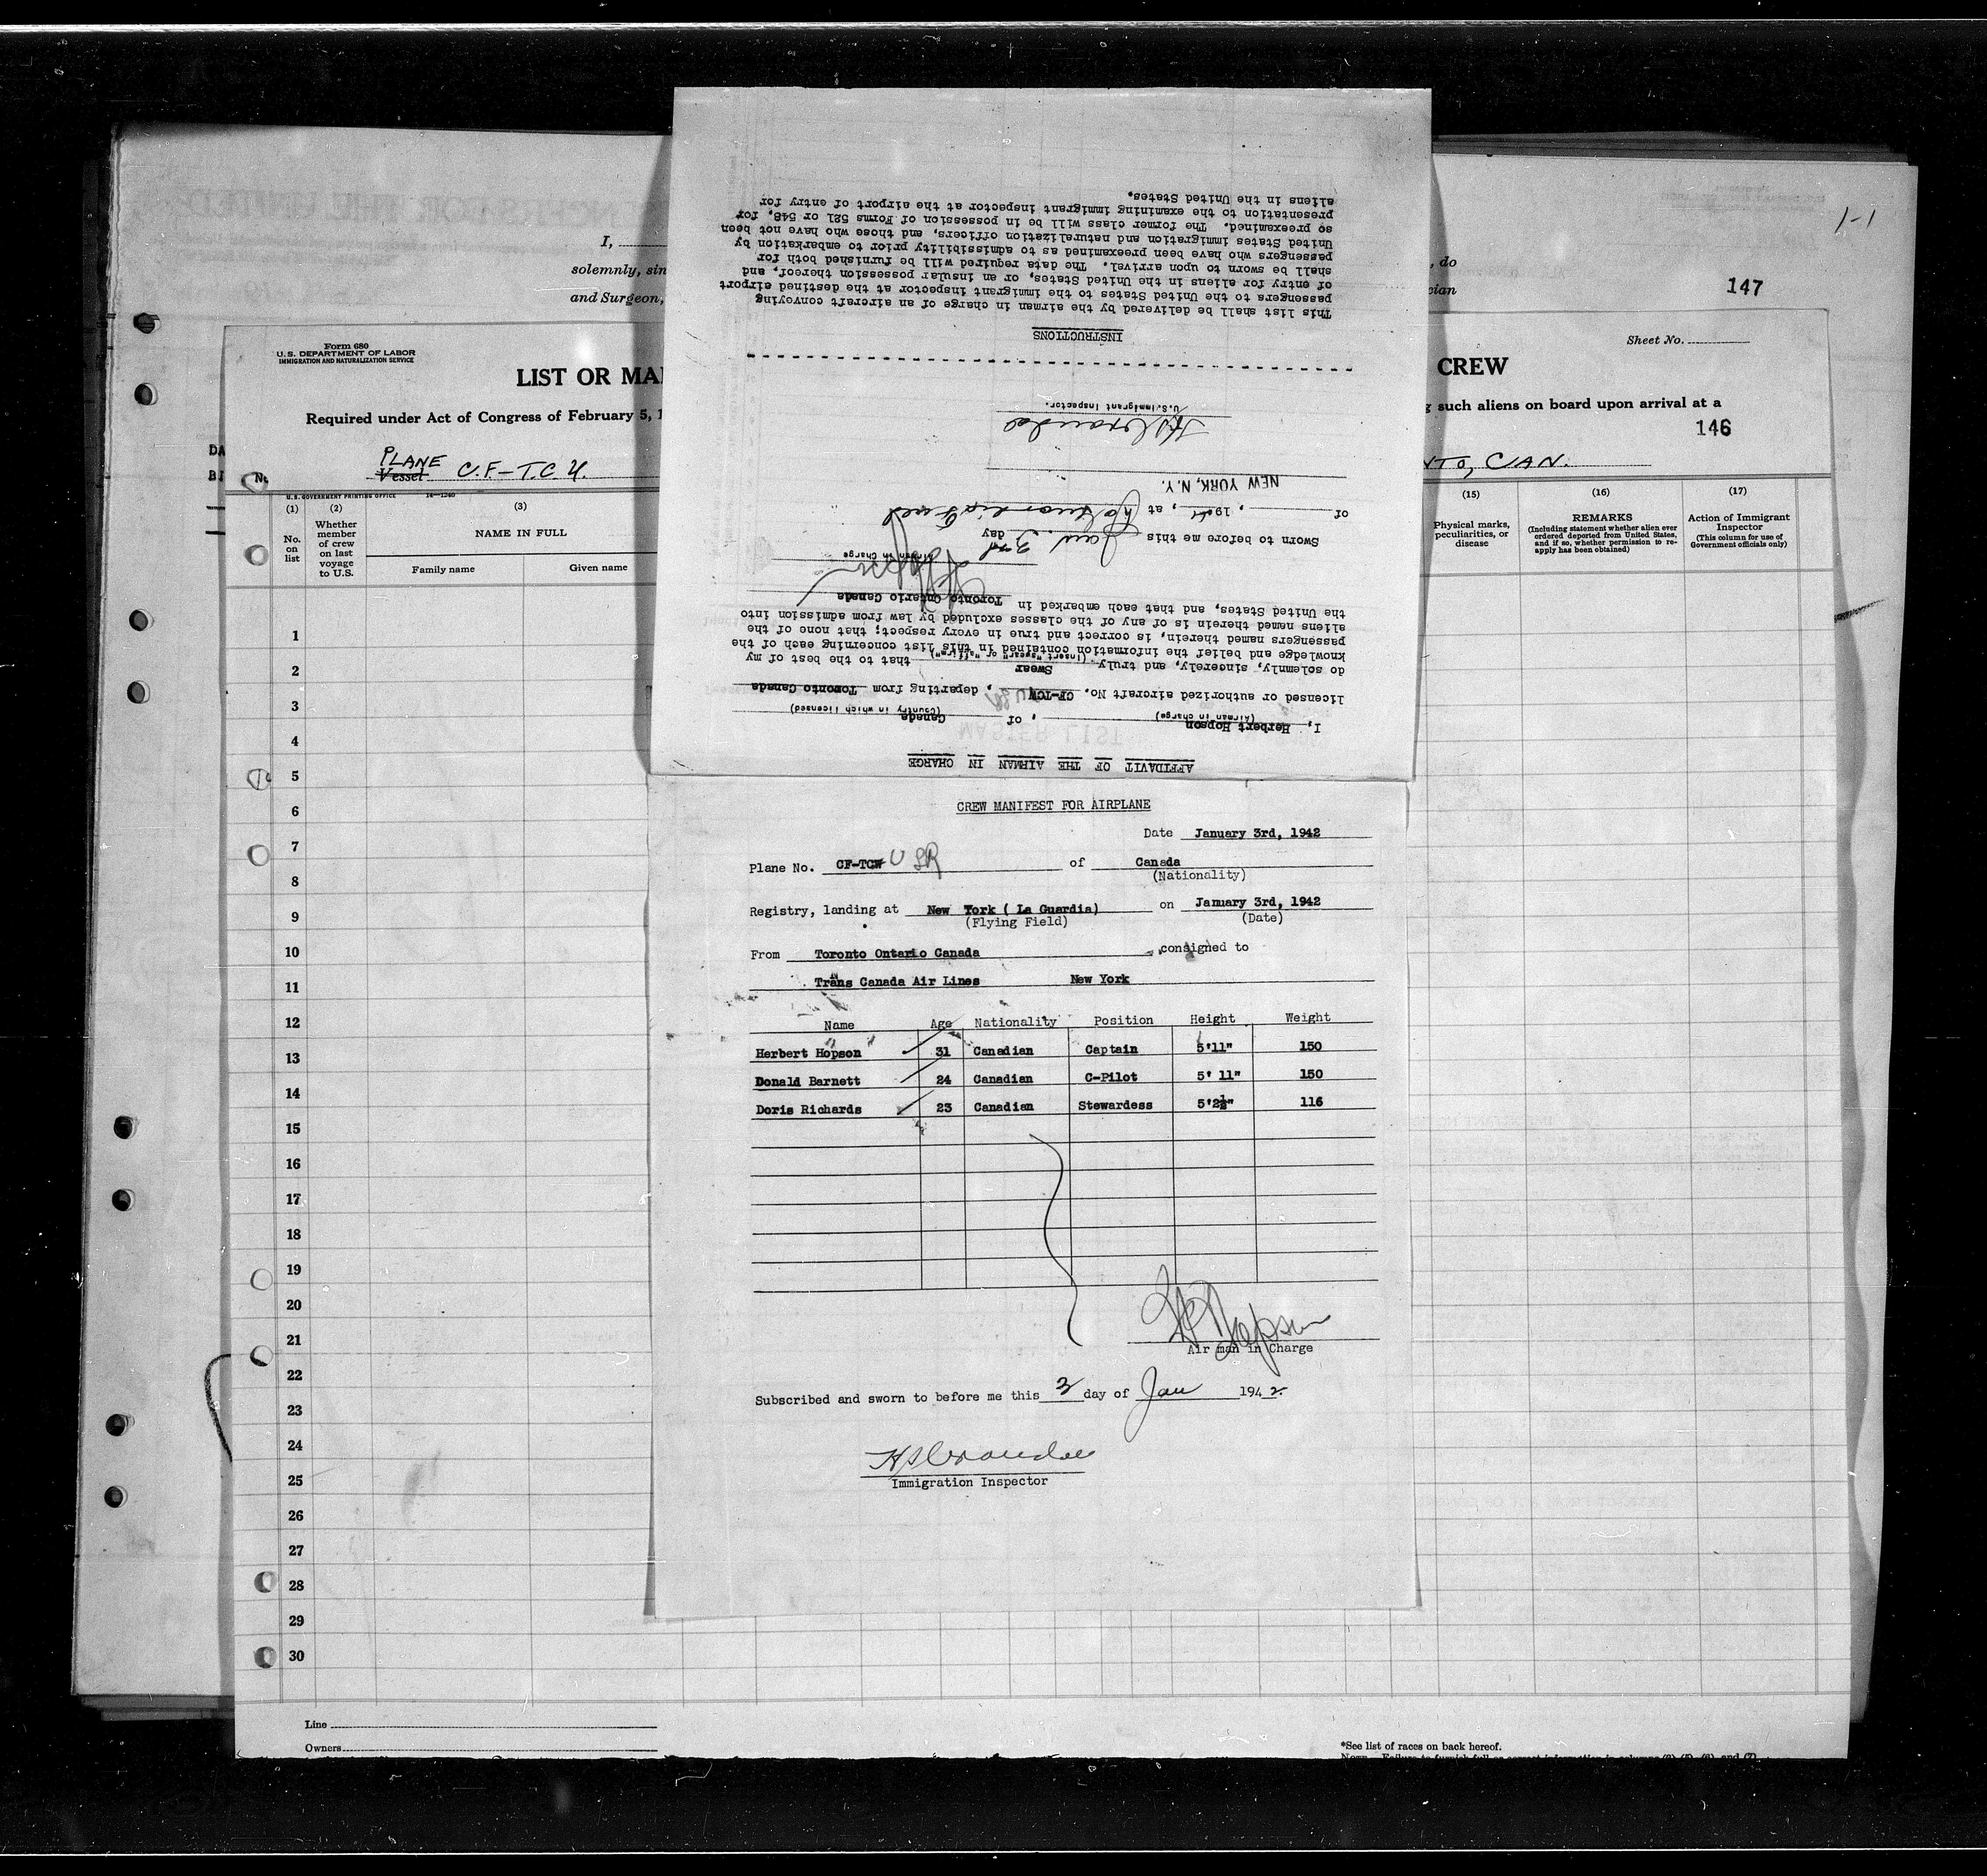 1-1
I,
, do
solemnly, sin
cian
and Surgeon,
147
Form 680
U.S. DEPARTMENT OF LABOR
IMMIGRATION AND NATURALIZATION SERVICE
Sheet No.
LIST OR MA
CREW
Required under Act of Congress of February 5, 1
g such aliens on board upon arrival at a
146
DA
BI
No.
PLANE
Vessel CF-TCU.
NTO, CAN.
U.S. GOVERNMENT PRINTING OFFICE 14-1240
(1) (2) (3)
No. on list
Whether member of crew on last voyage to U.S.
NAME IN FULL
Family name Given name
(15) (16) (17)
Physical marks, peculiarities, or disease
REMARKS
(Including statement whether alien ever ordered deported from United States, and if so, whether permission to reapply has been obtained)
Action of Immigrant Inspector
(This column for use of Government officials only)
1
2
3
4
5
6
7
8
9
10
11
12
13
14
15
16
17
18
19
20
21
22
23
24
25
26
27
28
29
30
Line
Owners
*See list of races on back hereof.
AFFIDAVIT OF THE AIRMAN IN CHARGE
I, Herbert Hopson, of Canada
(Airman in charge) (Country in which licensed)
licensed or authorized aircraft No. CF-TCW, departing from Toronto Ontario Canada
do solemnly, sincerely, and truly Swear that to the best of my
(insert "swear" or "affirm")
knowledge and belief the information contained in this list concerning each of the
passengers named therein, is correct and true in every respect; that none of the
aliens named therein is of any of the classes excluded by law from admission into
the United States, and that each embarked in Toronto Ontario Canada
Airman in Charge
Sworn to before me this 3rd day
of Jan, 194, at
NEW YORK, N.Y.
U.S. Immigrant Inspector.
INSTRUCTIONS
This list shall be delivered by the airman in charge of an aircraft conveying
passengers to the United States to the immigrant inspector at the destined airport
of entry for aliens in the United States, or an insular possession thereof, and
shall be sworn to upon arrival. The data required will be furnished both for
passengers who have been preexamined as to admissibility prior to embarkation by
United States immigration and naturalization officers, and those who have not been
so preexamined. The former class will be in possession of Forms 521 or 548, for
presentation to the examining immigrant inspector at the airport of entry for
aliens in the United States.
CREW MANIFEST FOR AIRPLANE
Date January 3rd, 1942
Plane No. CF-TCW U of Canada
(Nationality)
Registry, landing at New York ( La Guardia) on January 3rd, 1942
(Flying Field) (Date)
From Toronto Ontario Canada , consigned to
Trans Canada Air Lines New York
Name Age Nationality Position Height Weight
Herbert Hopson 31 Canadian Captain 5'11" 150
Donald Barnett 24 Canadian C-Pilot 5' 11" 150
Doris Richards 23 Canadian Stewardess 5'2½" 116
Hopson
Air man in Charge
Subscribed and sworn to before me this 3 day of Jan 1942
Immigration Inspector